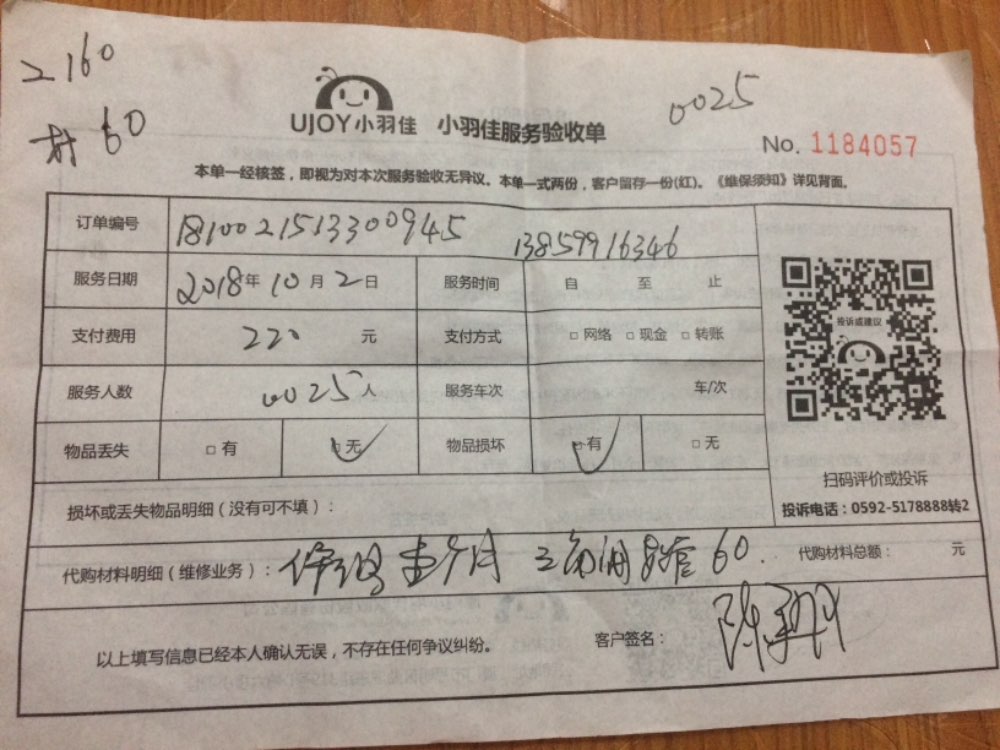 工160
材60
0025
UJOY小羽佳 小羽佳服务验收单
No. 1184057
本单一经核签，即视为对本次服务验收无异议。本单一式两份，客户留存一份(红)。《维保须知》详见背面。
订单编号 1810021513300945 13859916346
服务日期 2018年10月2日 服务时间 自 至 止
支付费用 220 元 支付方式 □网络 □现金 □转账
服务人数 0025人 服务车次 车/次
物品丢失 □有 □无 物品损坏 □有 □无
投诉或建议
扫码评价或投诉
投诉电话：0592-5178888转2
损坏或丢失物品明细（没有可不填）：
代购材料明细（维修业务）： 保修壹个月 三角阀 60. 代购材料总额： 元
以上填写信息已经本人确认无误，不存在任何争议纠纷。 客户签名： 陈